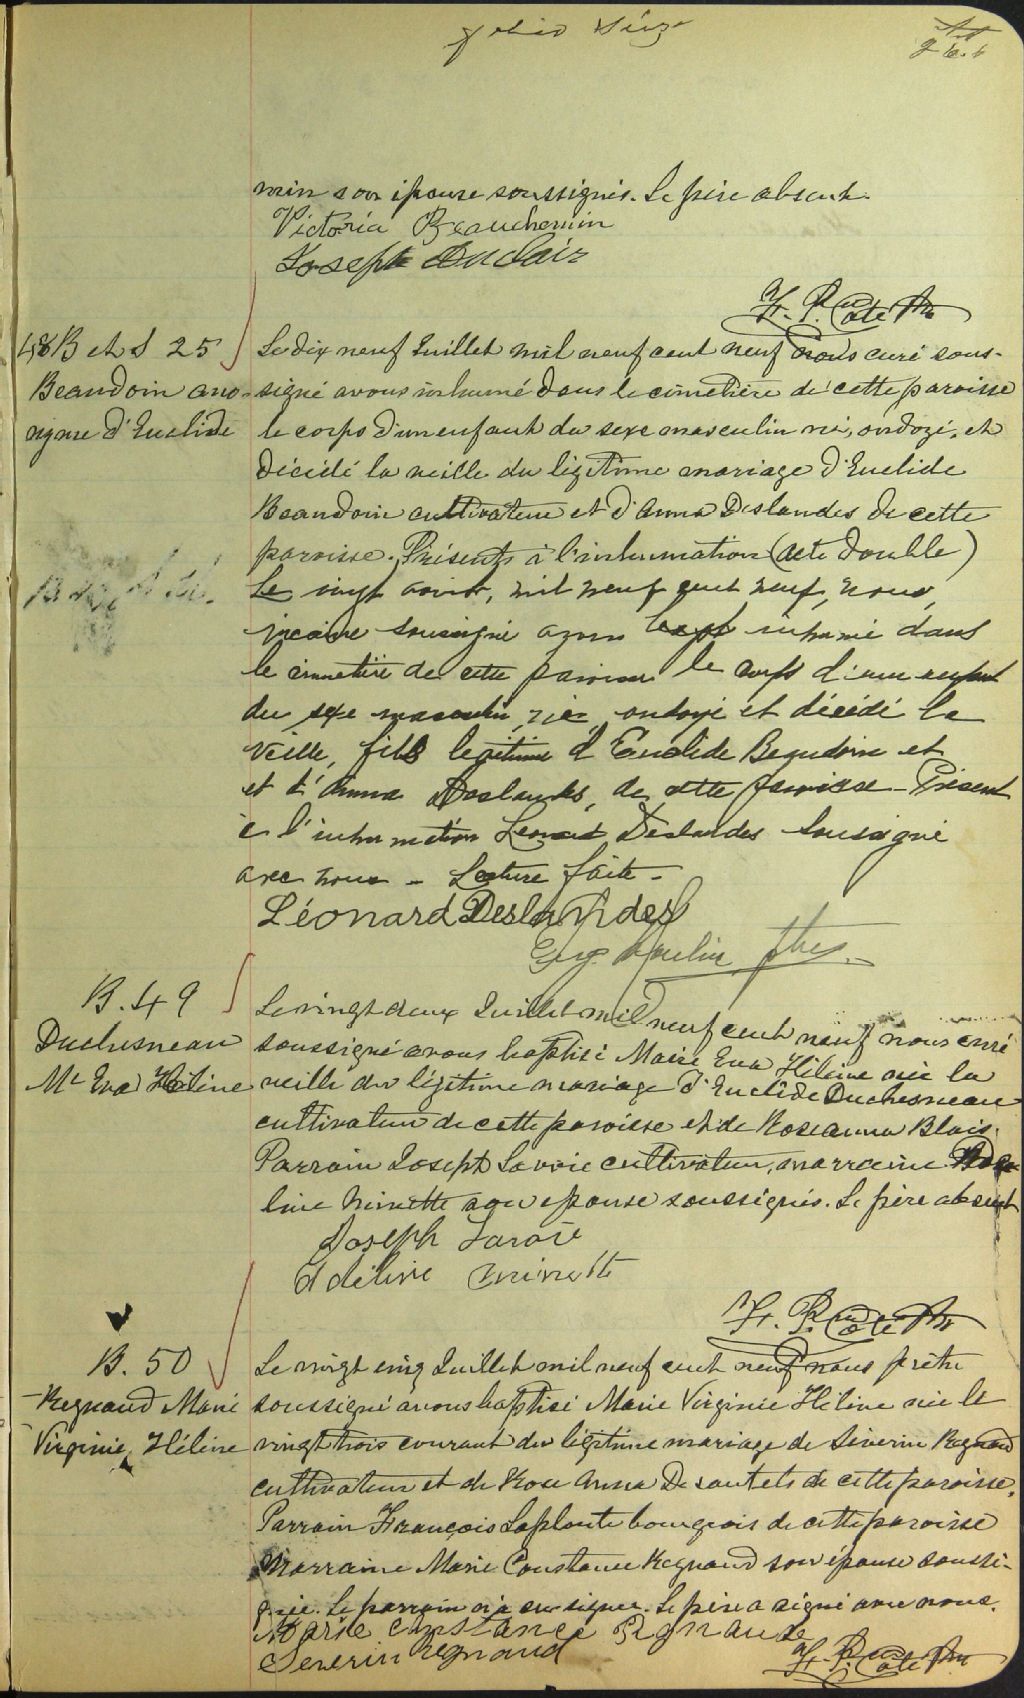 folio Seize
min son épouse soussignés. Le père absent.
Victoria Beauchemin
Joseph Duclair
F. P. Coté Ptre
48 B et S 25
Beaudoin ano-
nyme d'Euclide
Le dix neuf Juillet mil neuf cent neuf nous curé sous-
signé avons inhumé dans le cimetière de cette paroisse
le corps d'un enfant du sexe masculin né, ondoyé, et
décédé la veille du légitime mariage d'Euclide
Beaudoin cultivateur et d'Anna Deslandes de cette
paroisse. Présents à l'inhumation (acte double)
Le vingt août, mil neuf cent neuf, nous,
vicaire soussigné avons inhumé dans
le cimetière de cette paroisse le corps d'un enfant
du sexe masculin, né, ondoyé et décédé la
veille, fils légitime d'Euclide Beaudoin et
et d'Anna Deslandes, de cette paroisse - Présent
à l'inhumation Léonard Deslandes soussigné
avec nous - Lecture faite -
Léonard Deslandes
Poulin ptre.
B. 49
Duchesneau
Me Eva Hélène
Le vingt deux Juillet mil neuf cent neuf nous curé
soussigné avons baptisé Marie Eva Hélène née la
veille du légitime mariage d'Euclide Duchesneau
cultivateur de cette paroisse et de Roseanna Blais.
Parrain Joseph Savoie cultivateur, marraine Adé-
line Minette son épouse soussignés. Le père absent
Joseph Savoie
Adéline Minette
F. P. Coté Ptre
B. 50
Regnaud Marie
Virginie Hélène
Le vingt cinq Juillet mil neuf cent neuf nous prêtre
soussigné avons baptisé Marie Virginie Hélène née le
vingt trois courant du légitime mariage de Séverin Regnaud
cultivateur et de Rose Anna Desautels de cette paroisse.
Parrain François Laplante bourgeois de cette paroisse
Marraine Marie Constance Regnaud son épouse soussi-
gnée. Le parrain n'a su signer. Le père a signé avec nous.
Marie Constance Regnaud
Severin Regnaud
F. P. Coté Ptre